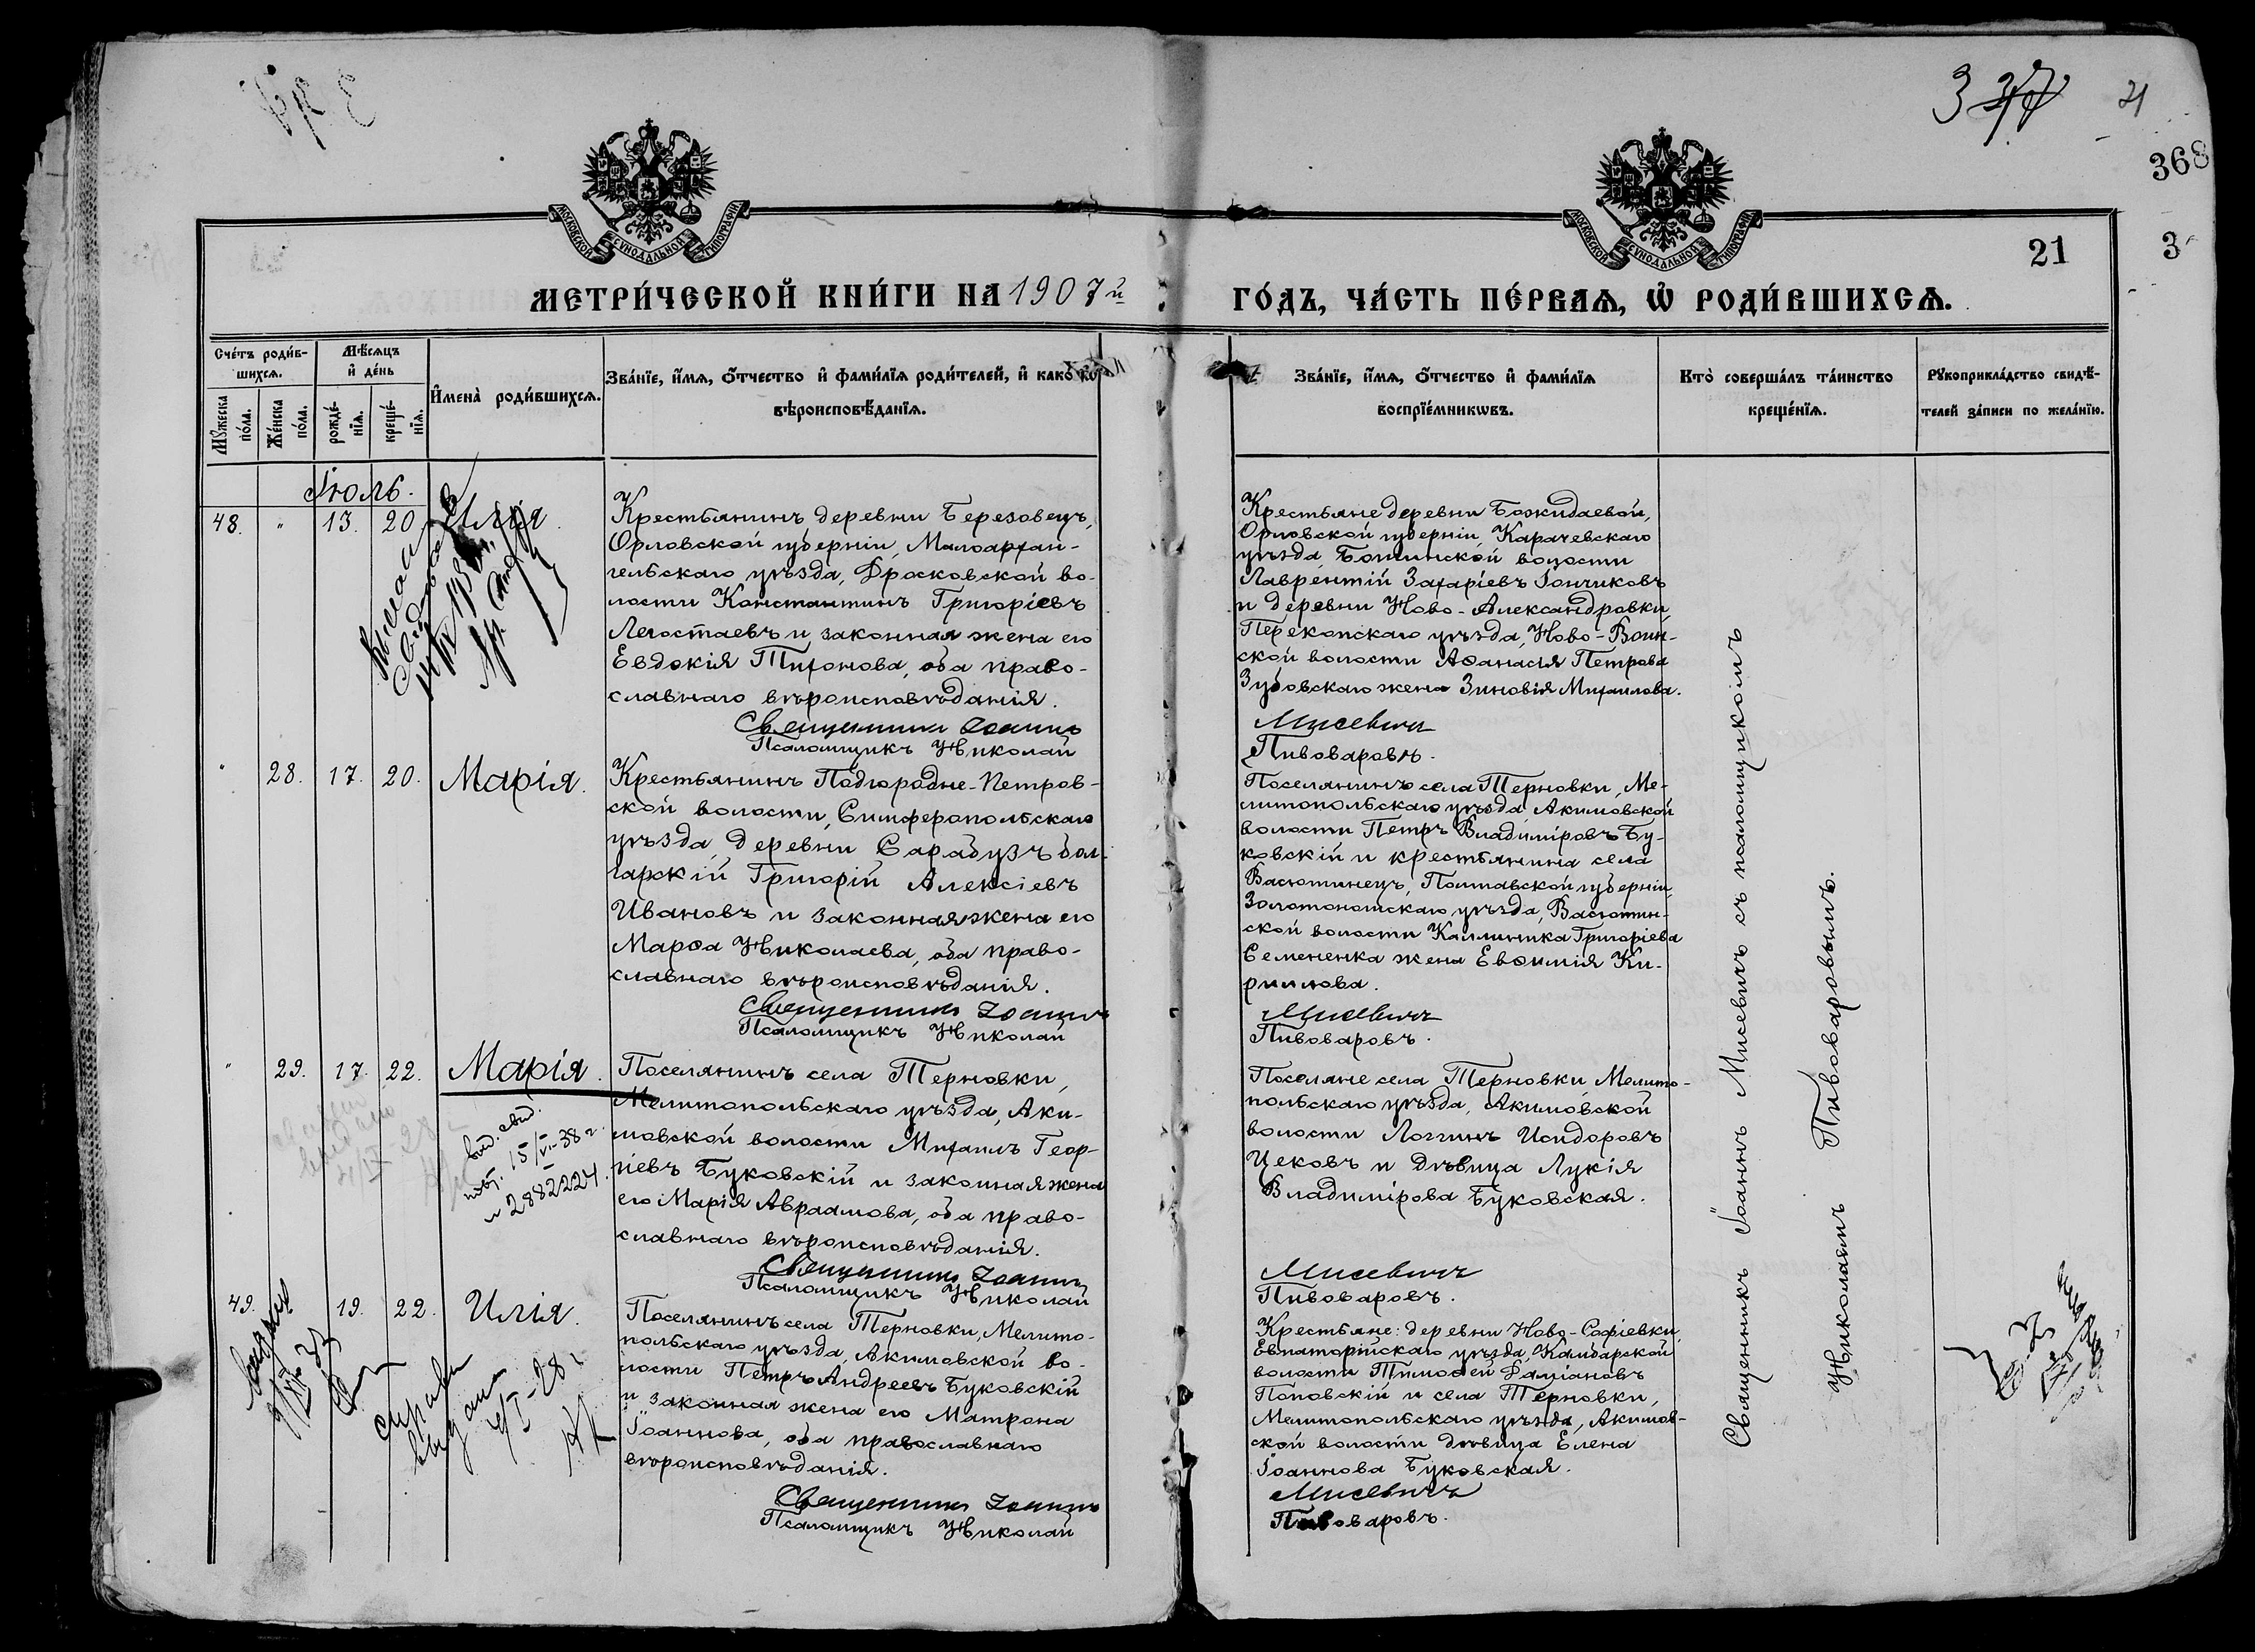 3
21
368
МОСКОВСКОЙ СѴНОДАЛЬНОЙ ТИПОГРАФІИ
МОСКОВСКОЙ СѴНОДАЛЬНОЙ ТИПОГРАФІИ
21
3
МЕТРИ́ЧЕСКОЙ КНИ́ГИ НА 1907й
ГО́ДЪ, ЧА́СТЬ ПЕ́РВАѦ, Ѡ҆ РОДИ́ВШИХСѦ.
Сче́тъ роди́в-
шихсѧ.
Мѹ́жеска
по́ла.
Же́нска
по́ла.
Мѣ́сѧцъ
и҆ де́нь
рожде́-
нїѧ.
креще́-
нїѧ.
И҆мена̀ роди́вшихсѧ.
Зва́нїе, и҆́мѧ, ѻ҆́тчество и҆ фами́лїѧ роди́телей, и҆ како́гѡ
вѣроисповѣ́данїѧ.
Зва́нїе, и҆́мѧ, ѻ҆́тчество и҆ фами́лїѧ
воспрїе́мникѡвъ.
Кто̀ соверша́лъ та́инство
креще́нїѧ.
Рѹкоприкла́дство свидѣ́-
телей за́писи по жела́нїю.
Іюль.
48. " 13. 20. Илія.
Крестьянинъ деревни Березовецъ,
Орловской губерніи, Малоархан-
гельскаго уѣзда, Дросковской во-
лости Константинъ Григоріевъ
Легостаевъ и законная жена его
Евдокія Тихонова, оба право-
славнаго вѣроисповѣданія.
Священникъ Іоаннъ
Псаломщикъ Николай
Крестьяне деревни Божидаевой,
Орловской губерніи, Карачевскаго
уѣзда, волости
Лаврентій Захаріевъ Гончиковъ
и деревни Ново-Александровки,
Перекопскаго уѣзда, Ново-Воин-
ской волости Аѳанасія Петрова
Зубовскаго жена Зиновія Михаилова.
Мисевичъ
Пивоваровъ.
" 28. 17. 20. Марія.
Крестьянинъ Подгородне-Петров-
ской волости, Симферопольскаго
уѣзда, деревни Сарабузъ бол-
гарскій Григорій Алексіевъ
Ивановъ и законная жена его
Марѳа Николаева, оба право-
славнаго вѣроисповѣданія.
Священникъ Іоаннъ
Псаломщикъ Николай
Поселянинъ села Терновки, Ме-
литопольскаго уѣзда Акимовской
волости Петръ Владиміровъ Бу-
ковскій и крестьянина села
Васютинецъ, Полтавской губерніи,
Золотоношскаго уѣзда, Васютин-
ской волости Каллиника Григоріева
Семененка жена Евѳимія Ки-
риллова.
Мисевичъ
Пивоваровъ.
" 29. 17. 22. Марія.
выд. свид.
повт. 15/VI-38 г.
№ 2882224.
Поселянинъ села Терновки,
Мелитопольскаго уѣзда, Аки-
мовской волости Михаилъ Геор-
гіевъ Буковскій и законная жена
его Марія Авраамова, оба право-
славнаго вѣроисповѣданія.
Священникъ Іоаннъ
Псаломщикъ Николай
Поселяне села Терновки Мелито-
польскаго уѣзда, Акимовской
волости Логгинъ Исидоровъ
Цековъ и дѣвица Лукія
Владимірова Буковская.
Мисевичъ
Пивоваровъ.
49. 19. 22. Илія.
справка
выдана
4/I-28 г
Поселянинъ села Терновки, Мелито-
польскаго уѣзда, Акимовской во-
лости Петръ Андреевъ Буковскій
и законная жена его Матрона
Іоаннова, оба православнаго
вѣроисповѣданія.
Священникъ Іоаннъ
Псаломщикъ Николай
Крестьяне: деревни Ново-Софіевки,
Евпаторійскаго уѣзда, Камбарской
волости Тимоѳей Даміановъ
Поповскій и села Терновки,
Мелитопольскаго уѣзда, Акимов-
ской волости дѣвица Елена
Іоаннова Буковская.
Мисевичъ
Пивоваровъ.
Священникъ Іоаннъ Мисевичъ съ псаломщикомъ
Николаемъ Пивоваровымъ.